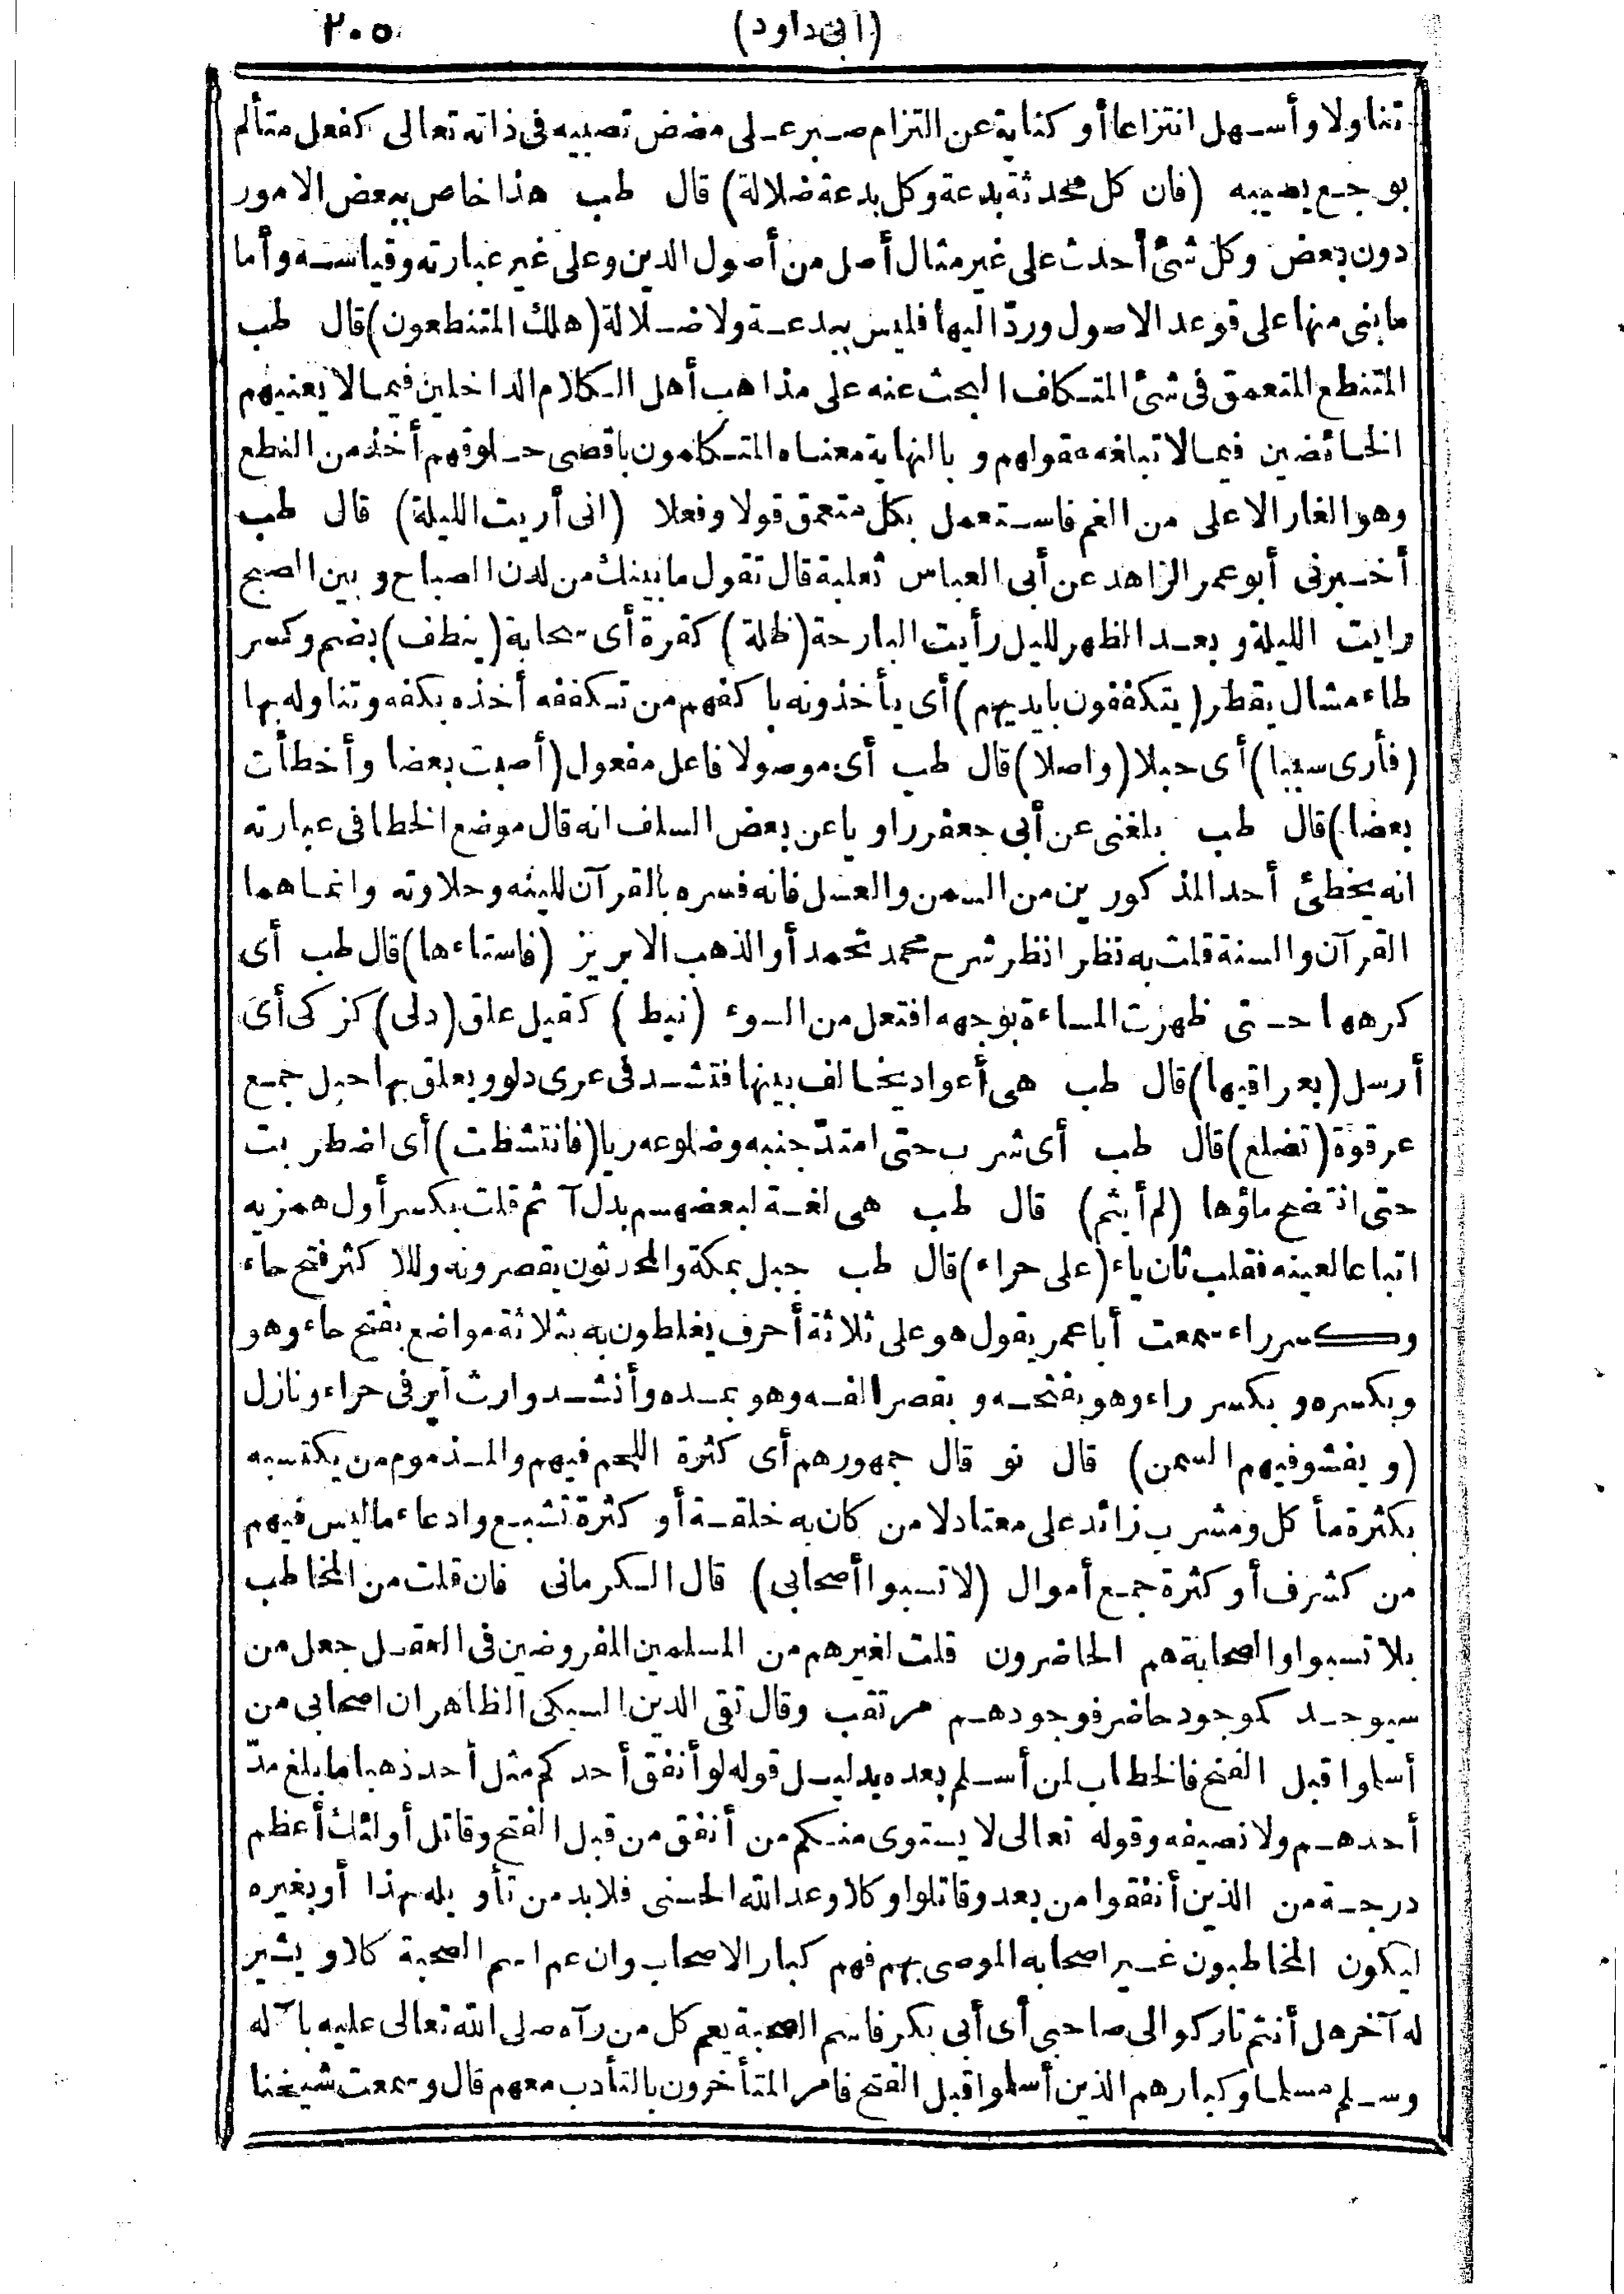 (ابى داود) ٢٠٥
تناولا وأسهل انتزاعا أو كناية عن التزام صبر على مضض تصيبه فى ذاته تعالى كفعل متألم
بوجع يصيبه (فان كل محدثة بدعة وكل بدعة ضلالة) قال طب هذا خاص ببعض الامور
دون بعض وكل شئ أحدث على غير مثال أصل من أصول الدين وعلى غير عبارته وقياسه وأما
ما بنى منها على قوعد الاصول وردّ اليها فليس ببدعة ولا ضلالة (هلك المتنطعون) قال طب
المتنطع المتعمق فى شئ المتكاف البحث عنه على مذاهب أهل الكلام الداخلين فيما لا يعنيهم
الخائضين فيما لا تبلغه عقولهم و بالنهاية معناه المتكلمون باقصى حلوقهم أخذ من النطع
وهو الغار الاعلى من الفم فاستعمل بكل متعمق قولا وفعلا (انى أريت الليلة) قال طب
أخبرنى أبو عمر الزاهد عن أبى العباس ثعلبة قال تقول ما بينك من لدن الصباح و بين الصبح
رايت الليلة و بعد الظهر لليل رأيت البارحة (ظلة) كقرة أى سحابة (ينطف) بضم وكسر
طاء مشال يقطر (يتكففون بايديهم) أى يأخذونه باكفهم من تكففه أخذه بكفه وتناوله بها
(فأرى سببا) أى حبلا (واصلا) قال طب أى موصولا فاعل مفعول (أصبت بعضا وأخطأت
بعضا) قال طب بلغنى عن أبى جعفر راويا عن بعض السلف انه قال موضع الخطا فى عبارته
انه يخطئ أحد المذكورين من السمن والعسل فانه فسره بالقرآن للينه وحلاوته وانما هما
القرآن والسنة قلت به نظر انظر شرح محمد تحمد أو الذهب الابريز (فاستاءها) قال طب أى
كرهها حتى ظهرت المساءة بوجهه افتعل من السوء (نيط) كقيل علق (دلى) كزكى أى
أرسل (بعراقيها) قال طب هى أعواد يخالف بينها فتشد فى عرى دلو ويعلق بها حبل جمع
عرقوة (تضلع) قال طب أى شرب حتى امتدّ جنبه وضلوعه ريا (فانتشطت) أى اضطربت
حتى انتضح ماؤها (لم أيثم) قال طب هى لغة لبعضهم بدل آثم قلت بكسر أول همزيه
اتباعا لعينه فقلب ثان ياء (على حراء) قال طب جبل بمكة والمحدثون يقصرونه وللاكثر فتح حاء
وكسر راء سمعت أبا عمر يقول هو على ثلاثة أحرف يغلطون به بثلاثة مواضع بفتح حاء وهو
وبكسره و بكسر راء وهو بفتحه و بقصر الفه وهو بمده وأنشد وارث أبر فى حراء ونازل
(و يفشو فيهم السمن) قال نو قال جمهورهم أى كثرة اللحم فيهم والمذموم من يكتسبه
بكثرة مأكل ومشرب زائد على معتاد لا من كان به خلقة أو كثرة تشبع وادعاء ما ليس فيهم
من كشرف أو كثرة جمع أموال (لا تسبوا أصحابى) قال الكرمانى فان قلت من المخاطب
بلا تسبوا والصحابة هم الحاضرون قلت لغيرهم من المسلمين المفروضين فى العقل جعل من
سيوجد كموجود حاضر فوجودهم مرتقب وقال تقى الدين السبكى الظاهر ان اصحابى من
أسلموا قبل الفتح فالخطاب لمن أسلم بعده بدليل قوله لو أنفق أحدكم مثل أحد ذهبا ما بلغ مدّ
أحدهم ولا نصيفه وقوله تعالى لا يستوى منكم من أنفق من قبل الفتح وقاتل أولئك أعظم
درجة من الذين أنفقوا من بعد وقاتلوا وكلا وعد الله الحسنى فلا بد من تأويله بهذا أو بغيره
ليكون المخاطبون غير اصحابه الموصى بهم فهم كبار الاصحاب وان عم اسم الصحبة كلا و يشير
له آخر هل أنتم تاركو الى صاحبى أى أبى بكر فاسم الصحبة يعم كل من رآه صلى الله تعالى عليه با آله
وسلم مسلما وكبارهم الذين أسلموا قبل الفتح فامر المتأخرون بالتأدب معهم قال وسمعت شيخنا